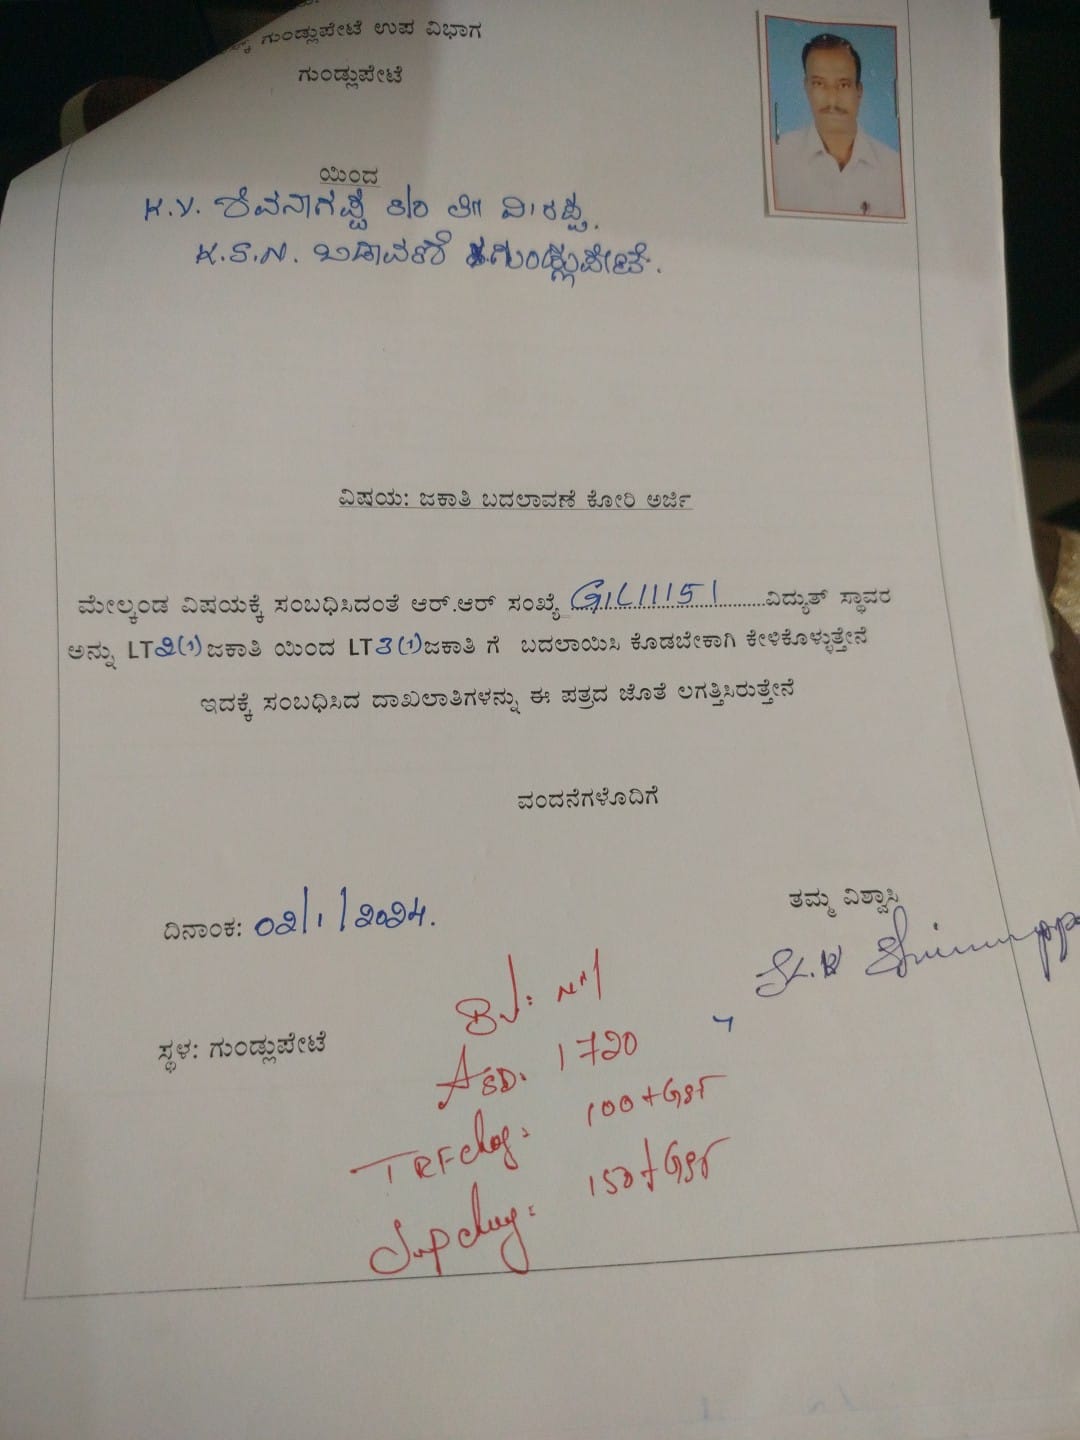 ಗುಂಡ್ಲುಪೇಟೆ ಉಪ ವಿಭಾಗ
ಗುಂಡ್ಲುಪೇಟೆ
ಯಿಂದ
K.V. ಶಿವನಾಗಪ್ಪ
K.S.N. ಬಡಾವಣೆ ಗುಂಡ್ಲುಪೇಟೆ.
ವಿಷಯ: ಜಕಾತಿ ಬದಲಾವಣೆ ಕೋರಿ ಅರ್ಜಿ
ಮೇಲ್ಕಂಡ ವಿಷಯಕ್ಕೆ ಸಂಬಧಿಸಿದಂತೆ ಆರ್.ಆರ್ ಸಂಖ್ಯೆ GIL11151 ವಿದ್ಯುತ್ ಸ್ಥಾವರ
ಅನ್ನು LT2(1)ಜಕಾತಿ ಯಿಂದ LT3(1)ಜಕಾತಿ ಗೆ ಬದಲಾಯಿಸಿ ಕೊಡಬೇಕಾಗಿ ಕೇಳಿಕೊಳ್ಳುತ್ತೇನೆ
ಇದಕ್ಕೆ ಸಂಬಧಿಸಿದ ದಾಖಲಾತಿಗಳನ್ನು ಈ ಪತ್ರದ ಜೊತೆ ಲಗತ್ತಿಸಿರುತ್ತೇನೆ
ವಂದನೆಗಳೊದಿಗೆ
ತಮ್ಮ ವಿಶ್ವಾಸಿ
ದಿನಾಂಕ: 02/1/2024.
ಸ್ಥಳ: ಗುಂಡ್ಲುಪೇಟೆ
ASD: 1720
TRF chg: 100+GST
Sup chg: 150+GST